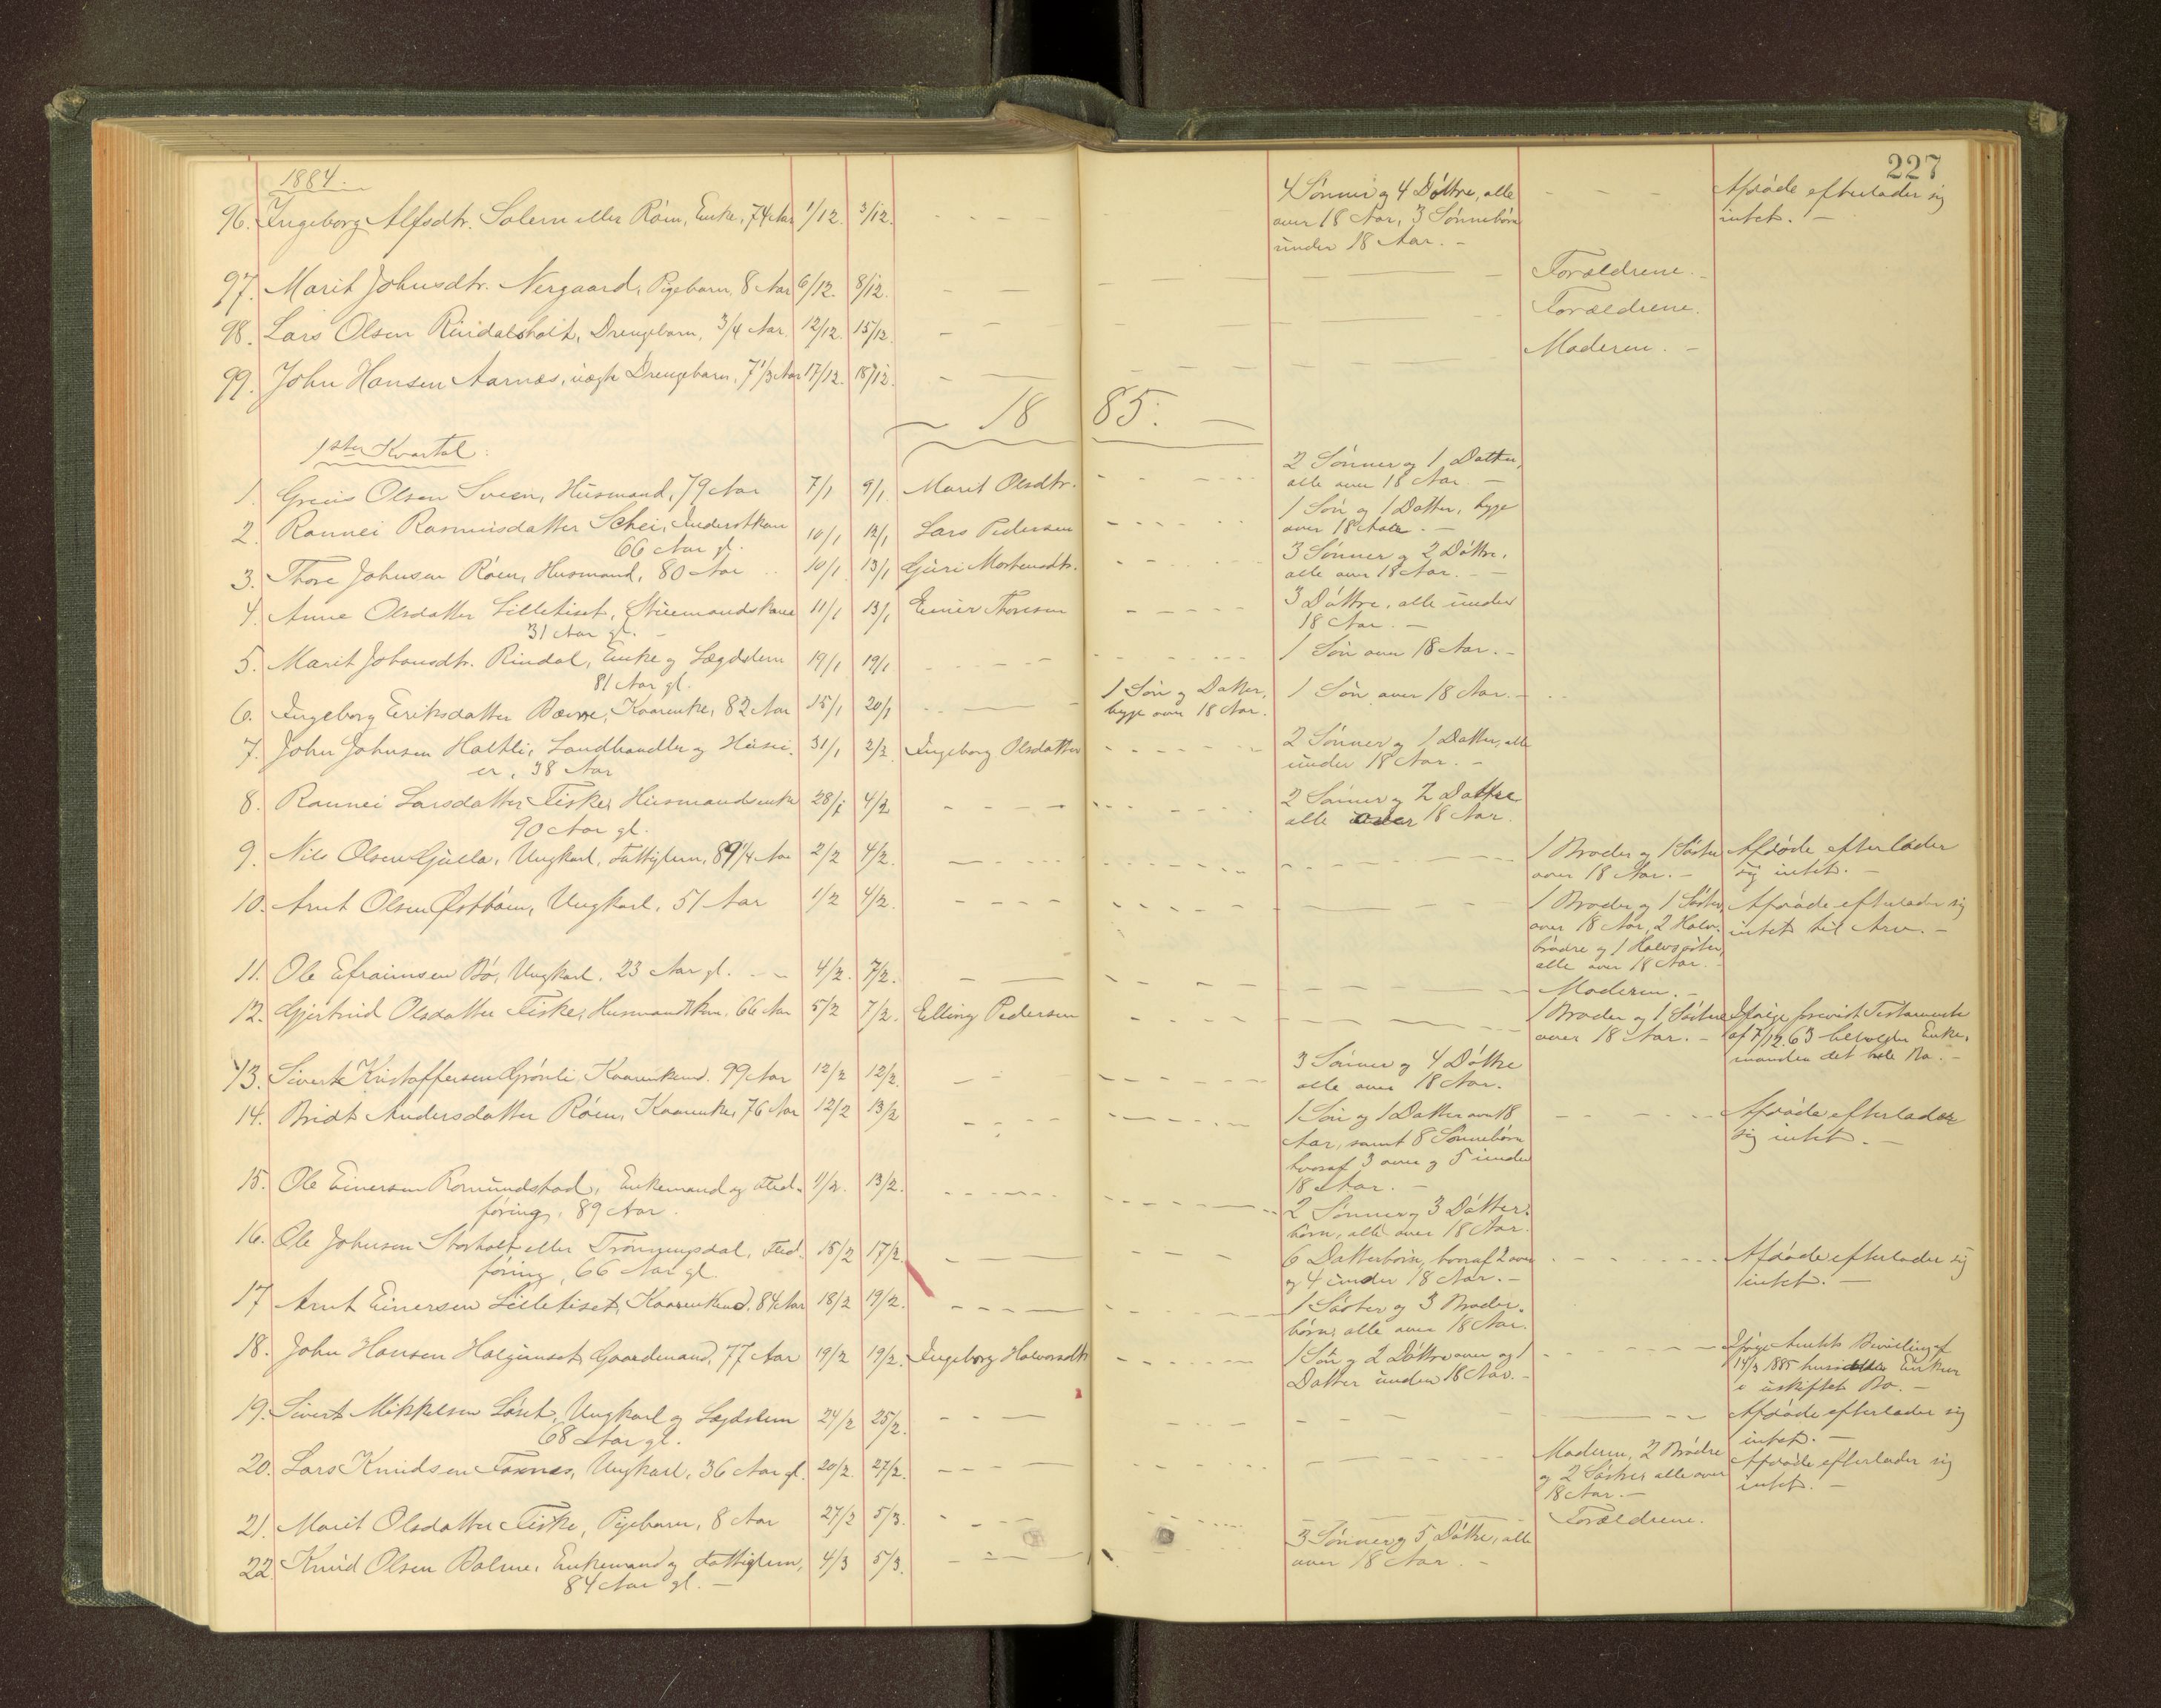 227
1884.
96. Ingeborg Alfsdtr. Solem eller Röen, Enke, 74 Aar 1/12. 3/12. 4 Sönner og 4 Döttre, alle Afdöde efterlader sig
over 18 Aar, 3 Sönnebörn intet. —
under 18 Aar. —
97. Marit Johnsdtr. Nergaard, Pigebarn, 8 Aar 6/12. 8/12. Forældrene. —
98. Lars Olsen Rindalsholt, Drengebarn, 3/4 Aar. 12/12. 15/12. Forældrene.
99. John Hansen Aarnæs, uægte Drengebarn, 7 1/3 Aar 17/12. 18/12. Moderen. —
1885.
1ster Kvartal:
1. Olsen Sveen, Husmand, 79 Aar 7/1 9/1. Marit Olsdtr. 2 Sönner og 1 Datter,
alle over 18 Aar. —
2. Rannei Rasmusdatter Schei, Inderstkone 10/1 12/1 Lars Pedersen 1 Sön og 1 Datter, begge
66 Aar gl. over 18 Aar. —
3. Thore Johnsen Röen, Husmand, 80 Aar 10/1 13/1 Guri Mortensdtr. 3 Sönner og 2 Döttre,
alle over 18 Aar. —
4. Anne Olsdatter Lilletiset, 11/1 13/1 Einer Thoresen 3 Döttre, alle under
31 Aar gl. — 18 Aar. —
5. Marit Johansdtr. Rindal, Enke og Lægdslem 19/1 19/1 1 Sön over 18 Aar. —
81 Aar gl.
6. Ingeborg Eriksdatter Bævre, Kaarenke, 82 Aar 15/1 20/1 1 Sön og Datter, 1 Sön over 18 Aar. —
begge over 18 Aar.
7. John Johnsen Holtli, Landhandler og Husei- 31/1 2/2 Ingeborg Olsdatter 2 Sönner og 1 Datter, alle
er, 38 Aar under 18 Aar. —
8. Rannei Larsdatter Fiske, Husmandsenke 28/1 4/2 2 Sönner og 2 Döttre
90 Aar gl. alle over 18 Aar.
9. Nils Olsen Gulla, Ungkarl, Fattiglem, 89 1/4 Aar 2/2 4/2. 1 Broder og 1 Söster Afdöde efterlader
over 18 Aar. — sig intet. —
10. Arnt Olsen Östböen, Ungkarl, 51 Aar 1/2 4/2. 1 Broder og 1 Söster, Afdöde efterlader sig
over 18 Aar, 2 Halv- intet til Arv. —
brödre og 1 Halvsöster,
alle over 18 Aar.
11. Ole Efraimsen Bö, Ungkarl. 23 Aar gl. 4/2. 7/2. Moderen. —
12. Gjertrud Olsdatter Fiske, Husmandskone. 66 Aar 5/2 7/2. Elling Pedersen 1 Broder og 1 Söster Ifölge forevist Testamente
over 18 Aar. — af 7/12.63 beholder Enke-
manden det hele Bo. —
13. Sivert Kristoffersen Grönli, Kaarenkemd. 99 Aar 12/2 12/2. 3 Sönner og 4 Döttre
alle over 18 Aar.
14. Bridt Andersdatter Röen, Kaarenke, 76 Aar 12/2 13/2 1 Sön og 1 Datter over 18 Afdöde efterlader
Aar, samt 8 Sönnebörn sig intet. —
hvoraf 3 over og 5 under
18 Aar. —
15. Ole Einersen Romundstad, Enkemand og Fled- 11/2. 13/2. 2 Sönner og 3 Datter-
föring, 89 Aar. börn, alle over 18 Aar.
16. Ole Johnsen Storholt eller Trönningsdal, Fled- 15/2 17/2. 6 Datterbörn, hvoraf 2 over Afdöde efterlader sig
föring, 66 Aar gl. og 4 under 18 Aar. — intet. —
17 Arnt Einersen Lilletiset, Kaarenkemd. 84 Aar 18/2 19/2. 1 Söster og 3 Broder-
börn, alle over 18 Aar.
18. John Hansen Halgunset, Gaardmand, 77 Aar 19/2 19/2. Ingeborg Halvorsdtr 1 Sön og 2 Döttre over og 1 Ifölge Amtets Bevilling af
Datter under 18 Aar. — 14/3 1885 Enken
i uskiftet Bo. —
19. Sivert Mikkelsen Löset, Ungkarl og Lægdslem 24/2 25/2. Afdöde efterlader sig
68 Aar gl. intet. —
20. Lars Knudsen Foxnes, Ungkarl, 36 Aar gl. 20/2. 27/2. Moderen, 2 Brödre Afdöde efterlader sig
og 2 Söstre, alle over intet. —
18 Aar. —
21. Marit Olsdatter Fiske, Pigebarn, 8 Aar 27/2 5/3. Forældrene.
22. Knud Olsen Bolme, Enkemand og Fattiglem, 4/3 5/3. 3 Sönner og 5 Döttre, alle
84 Aar gl. — over 18 Aar. —